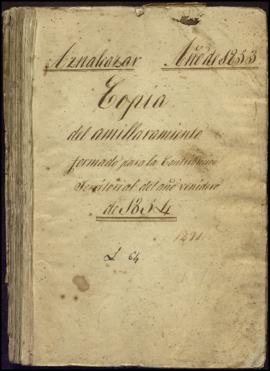 Aznalcazar Año de 1853
Copia
del amillaramiento
formado para la Contribucion
Territorial del año venidero
de 1854
L 64